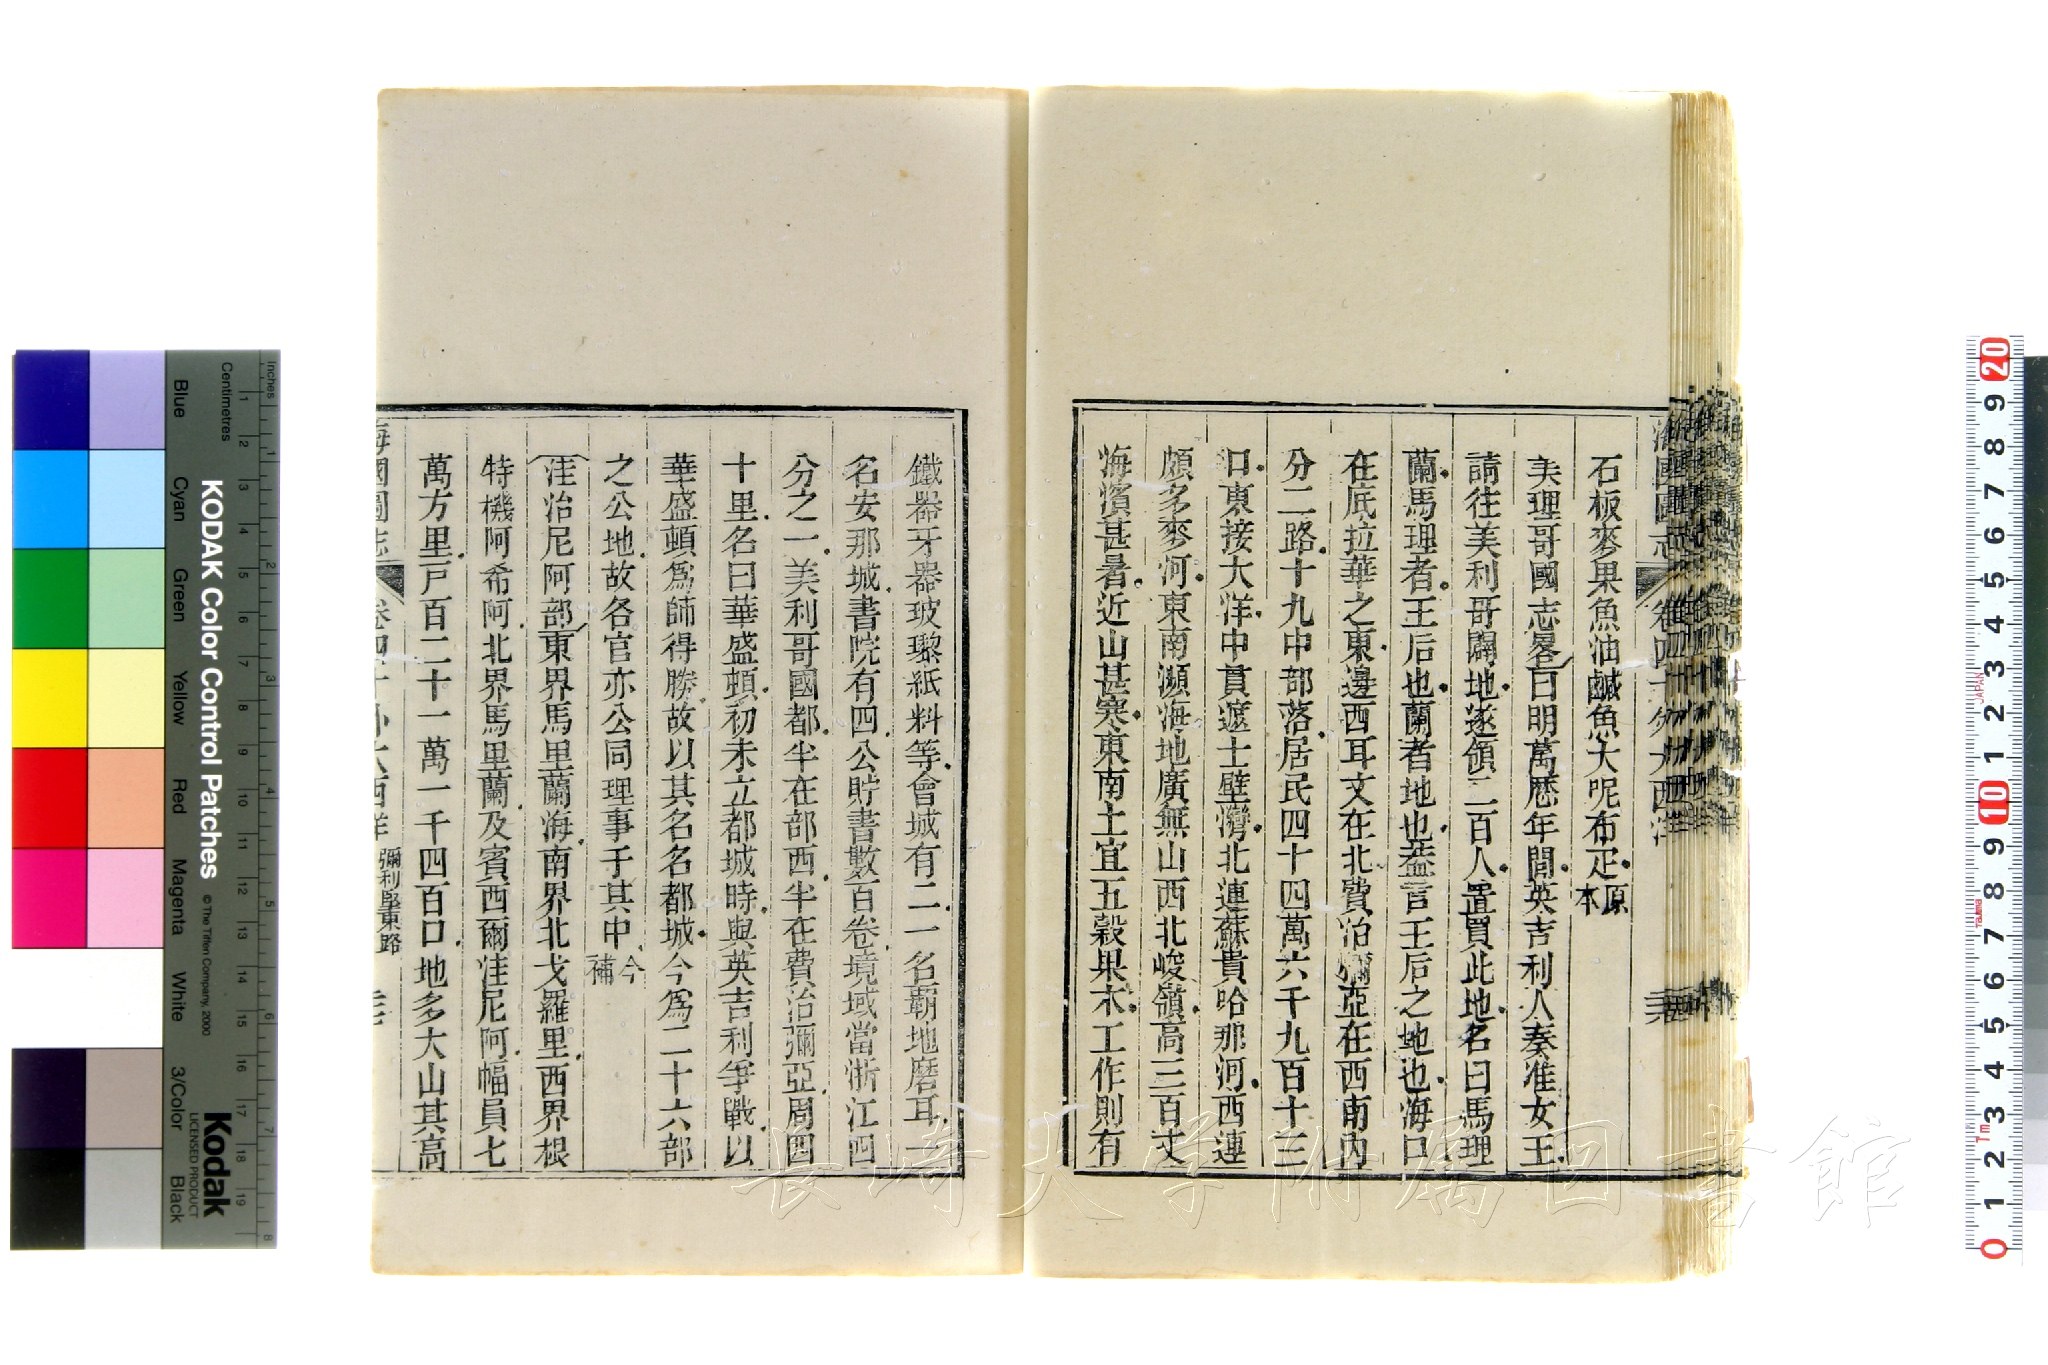 石板麥果魚油鹹魚大呢布疋原本
美理哥國志畧曰明萬歷年間英吉利人奏准女王
請往美利哥闢地遂領二百人置買此地名曰馬理
蘭馬理者王后也蘭者地也蓋言王后之地也海口
在底拉華之東邊西耳文在北費治彌亞在西南內
分二路十九中部落居民四十四萬六千九百十三
口東接大洋中貫遮士壁灣北連蘇貴哈那河西連
頗多麥河東南瀕海地廣無山西北峻嶺高三百丈
海濱甚暑近山甚寒東南土宜五穀果木工作則有
鐵器牙器玻瓈紙料等會城有二一名霸地磨耳一
名安那城書院有四公貯書數百卷境域當浙江四
分之一美利哥國都半在部西半在費治彌亞周四
十里名曰華盛頓初未立都城時與英吉利爭戰以
華盛頓為師得勝故以其名名都城今為二十六部
之公地故各官亦公同理事于其中今補
洼治尼阿部東界馬里蘭海南界北戈羅里西界根
特機阿希阿北界馬里蘭及賓西爾洼尼阿幅員七
萬方里戸百二十一萬一千四百口地多大山其高
海國圖志 卷四十 外大西洋 彌利堅東路
KODAK Color Control Patches © The Tiffen Company, 2000
Kodak
LICENSED PRODUCT
Inches
Centimetres
Blue Cyan Green Yellow Red Magenta White 3/Color Black
長崎大学附属図書館
JAPAN